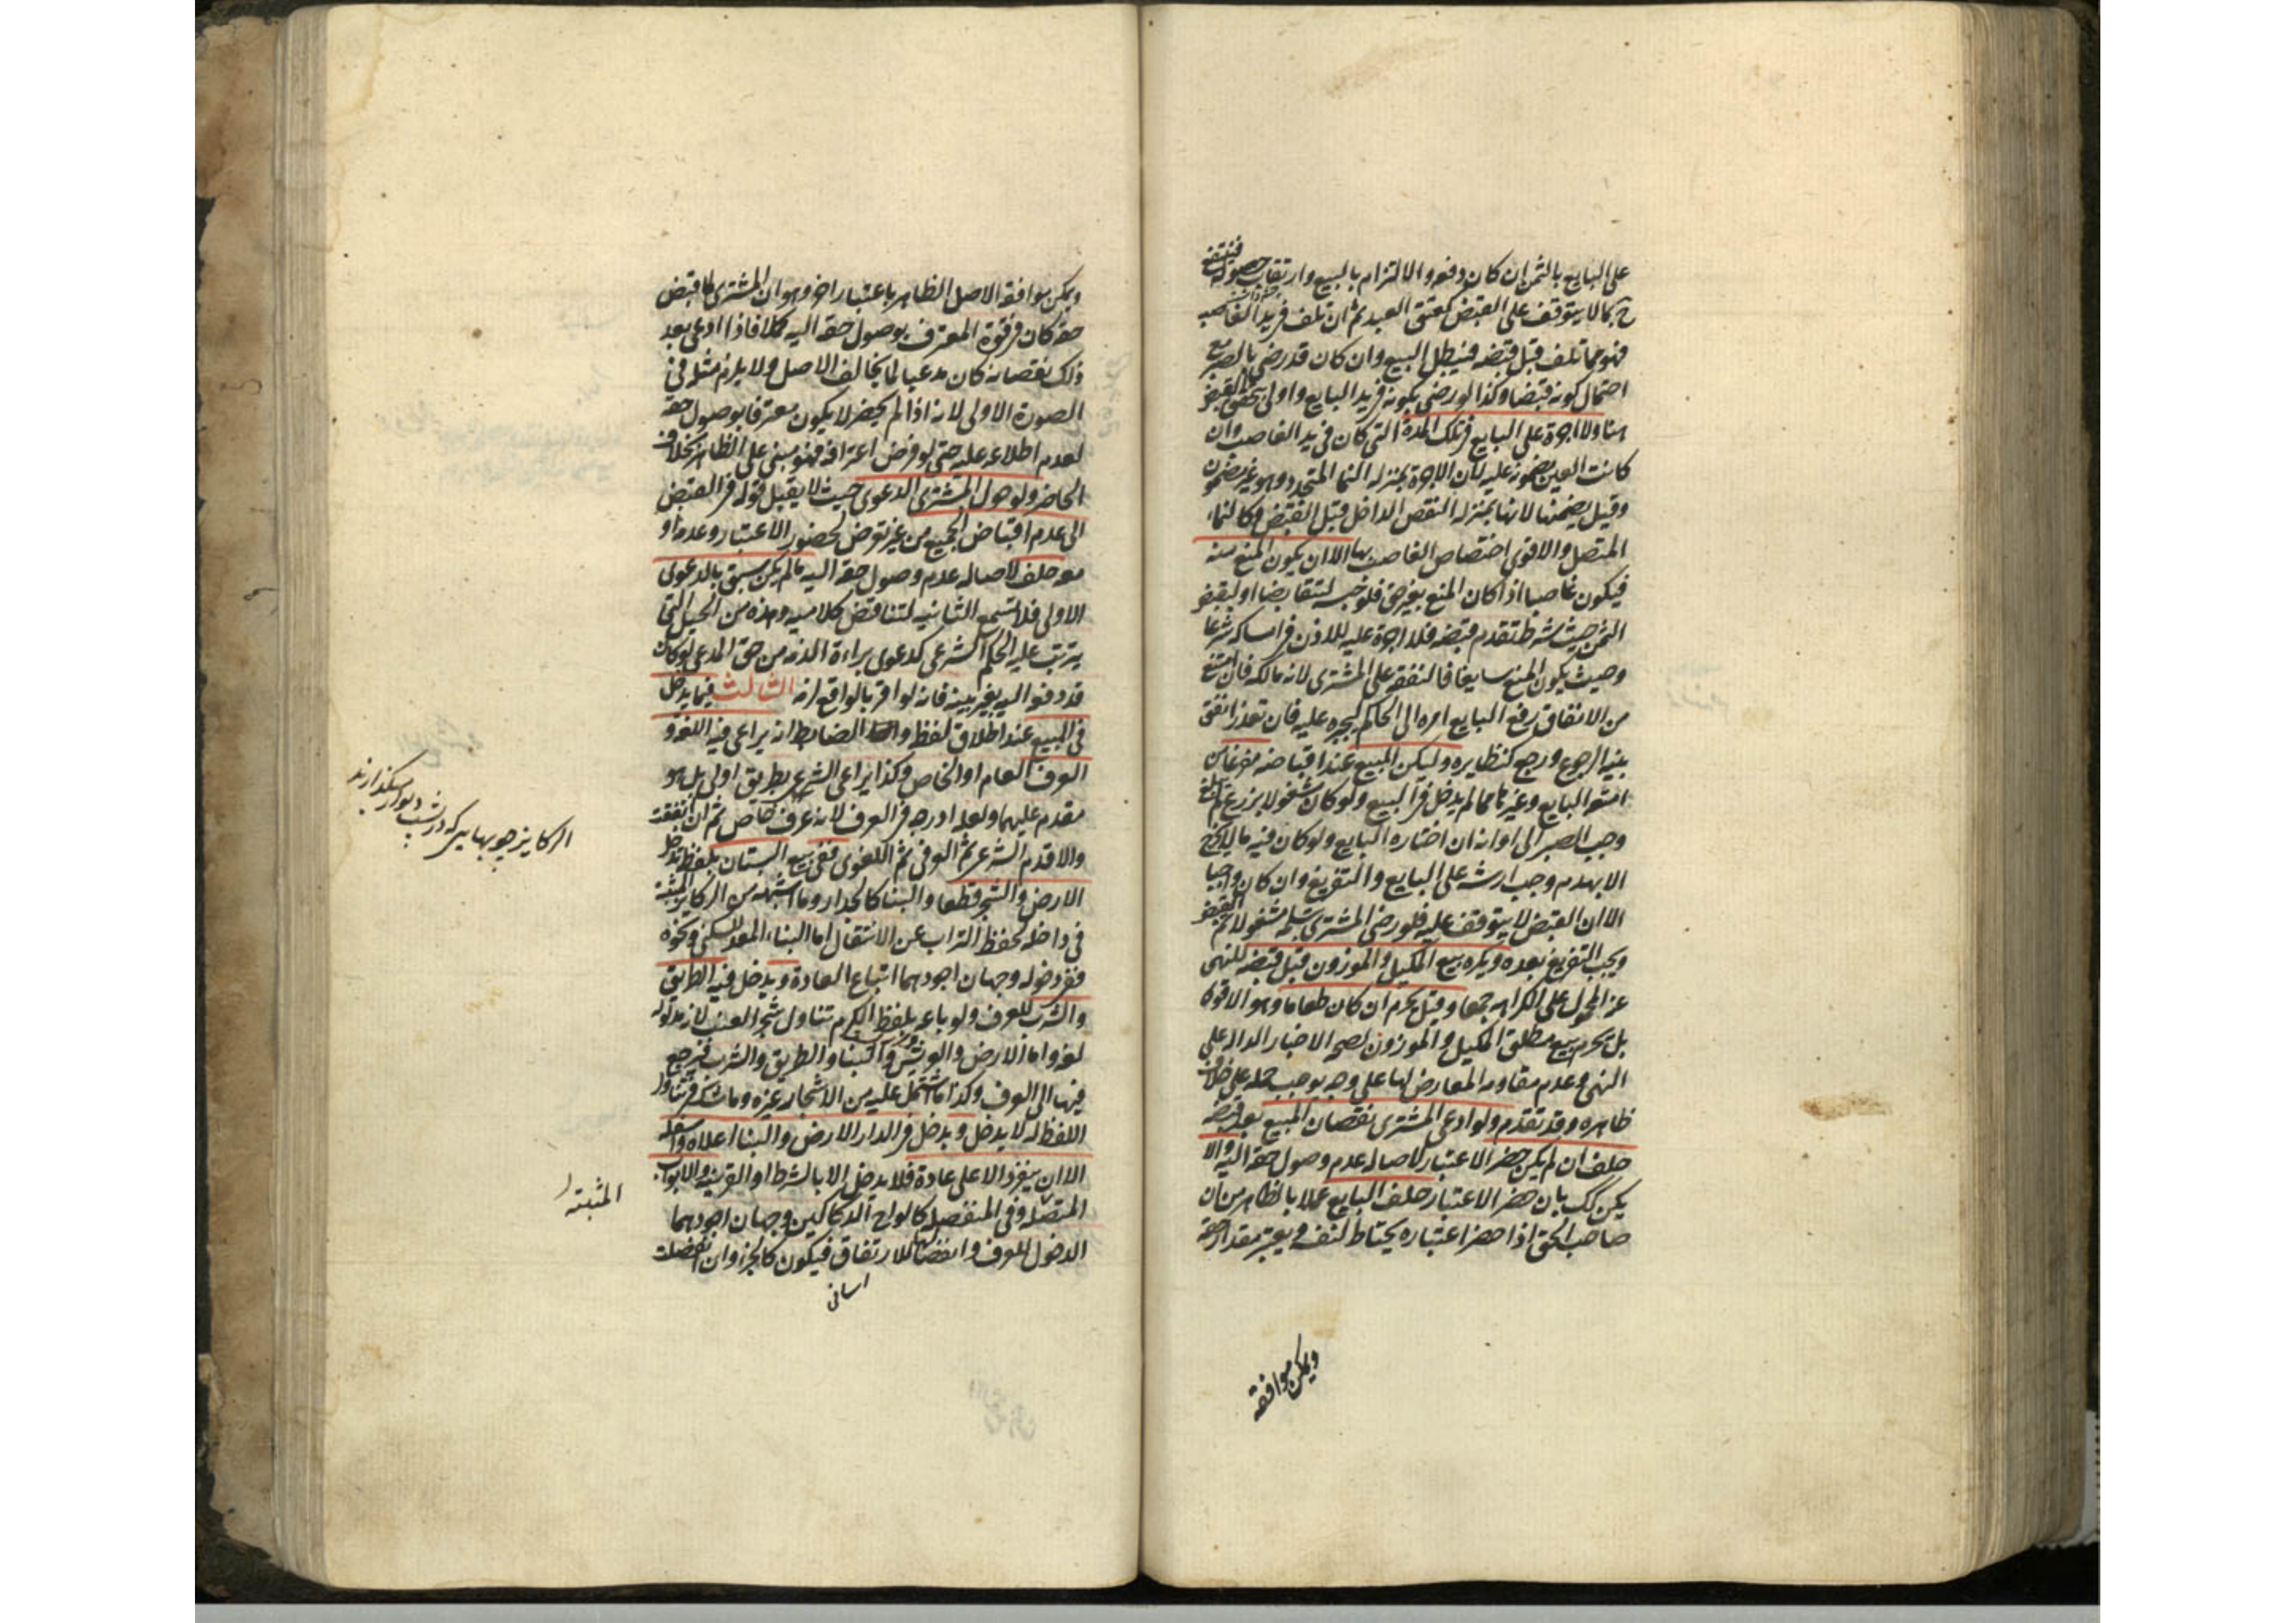 على البايع بالثمن ان كان دفعه والالتزام بالبيع وارتقاب حصوله فينتفع
ح بما لا يتوقف على القبض كعتق العبد ثم ان تلف في يد الغاصب
فهو مما تلف قبل قبضه فيبطل البيع وان كان قد رضى بالصبر مع
احتمال كونه قبضا وكذا لو رضى بكونه في يد البايع واولى بتحقق القبض
هنا ولا اجرة على البايع في تلك المدة التي كان في يد الغاصب وان
كانت العين مضمونة عليه لان الاجرة بمنزلة النما المتجدد وهو غير مضمون
وقيل يضمنها لانها بمنزلة النقص الداخل قبل القبض وكالنماء
المتصل والاقوى اختصاص الغاصب بها الا ان يكون المنع منه
فيكون غاصبا اذا كان المنع بغير حق فلو حبسه لتقابضا او ليقبض
الثمن حيث شرط تقدم قبضه فلا اجرة عليه للاذن في امساكه شرعا
وحيث يكون المنع سايغا فالنفقة على المشترى لانه مالكه فان امتنع
من الانفاق رفع البايع امره الى الحاكم ليجبره عليه فان تعذر انفق
بنية الرجوع ورجع كنظايره وليكن المبيع عند اقباضه مفرغا من
امتعة البايع وغيرها مما لم يدخل في البيع ولو كان مشغولا بزرع لم يبلغ
وجب الصبر الى اوانه ان اختاره البايع ولو كان فيه ما لا يخرج
الا بهدم وجب ارشه على البايع والتفريغ وان كان واجبا
الا ان القبض لا يتوقف عليه فلو رضى المشترى بتسلمه مشغولا تم القبض
ويجب التفريغ بعده ويكره بيع المكيل والموزون قبل قبضه للنهى
عنه المحمول على الكراهة جمعا وقيل يحرم ان كان طعاما وهو الاقوى
بل يحرم بيع مطلق المكيل والموزون لصحة الاخبار الدالة على
النهى وعدم مقاومة المعارض لها على وجه يوجب حمله على خلاف
ظاهره وقد تقدم ولو ادعى المشترى نقصان المبيع بعد قبضه
حلف ان لم يكن حضر الاعتبار لاصالة عدم وصول حقه اليه والا
يكن كك بان حضر الاعتبار حلف البايع عملا بالظاهر من ان
صاحب الحق اذا حضر اعتباره يحتاط لنفسه ويعتبر مقدار حقه
ويمكن موافقة
ويمكن موافقة الاصل الظاهر باعتبار اخر وهو ان المشترى لما قبض
حقه كان في قوة المعترف بوصول حقه اليه كملا فاذا ادعى بعد
ذلك نقصانه كان مدعيا لما يخالف الاصل ولا يلزم مثله في
الصورة الاولى لانه اذا لم يحضر لا يكون معترفا بوصول حقه
لعدم اطلاعه عليه حتى لو فرض اعترافه فهو مبنى على الظاهر بخلاف
الحاضر ولو حول المشترى الدعوى حيث لا يقبل قوله في القبض
الى عدم اقباض الجميع من غير تعرض لحضور الاعتبار وعدمه او
معه حلف لاصالة عدم وصول حقه اليه ما لم يكن سبق بالدعوى
الاولى فلا تسمع الثانية لتناقض كلاميه وهذه من الحيل التي
يترتب عليه الحكم الشرعى كدعوى براءة الذمة من حق المدعى لو كان
قد دفعه اليه بغير بينة فانه لو اقر بالواقع لزمه الثالث فيما يدخل
في المبيع عند اطلاق لفظه والضابط انه يراعى فيه اللغة و
العرف العام او الخاص وكذا يراعى الشرع بطريق اولى بل هو
مقدم عليهما ولعله ادرجه في العرف لانه عرف خاص ثم ان اتفقت
والا قدم الشرعى ثم العرفى ثم اللغوى ففى بيع البستان بلفظه تدخل
الارض والشجر قطعا والبنا كالجدار وما اشبهه من الركايز المثبتة
في داخله لحفظ التراب عن الانتقال اما البناء المعد للسكنى ونحوه
ففى دخوله وجهان اجودهما اتباع العادة ويدخل فيه الطريق
والشرب للعرف ولو باعه بلفظ الكرم تناول شجر العنب لانه مدلوله
لغة واما الارض والعريش والبنا والطريق والشرب فيرجع
فيها الى العرف وكذا ما اشتمل عليه من الاشجار غيره وما شك في تناول
اللفظ له لا يدخل ويدخل في الدار الارض والبنا اعلاه واسفله
الا ان ينفرد الاعلى عادة فلا يدخل الا بالشرط او القرينة والابواب
المتصلة وفى المنفصلة كالواح الدكاكين وجهان اجودهما
الدخول للعرف وانفصالها للارتفاق فيكون كالجزء وان انفصلت
اسانى
الركايز چوبهايى كه در پشت ديوار ميگذارند
المثبتة